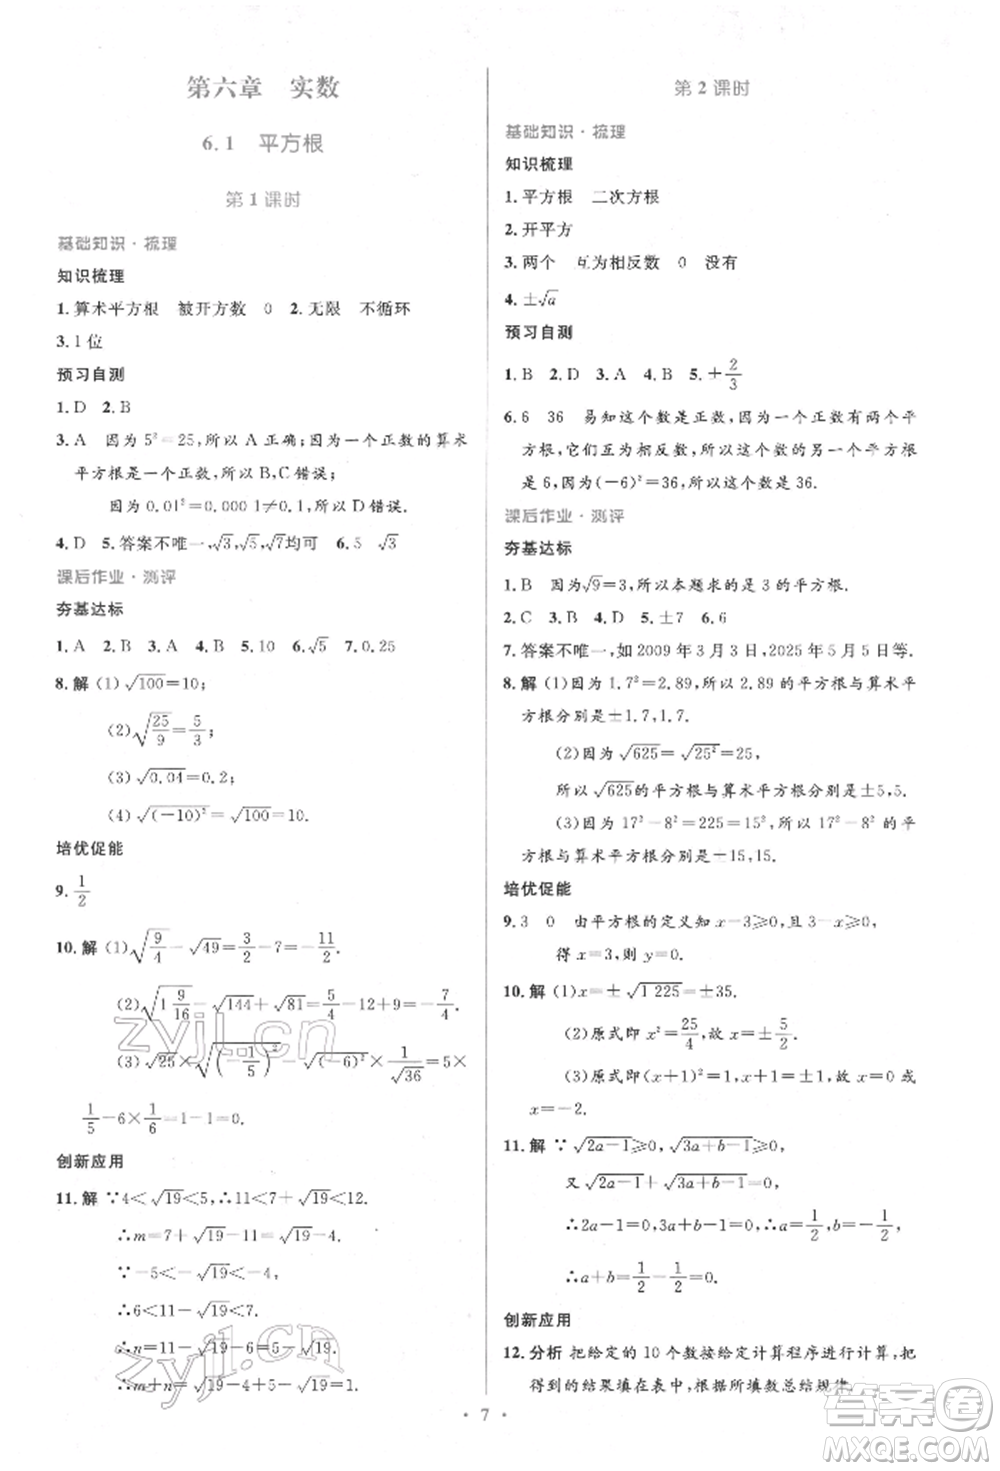 第六章 实数
6.1 平方根
第1课时
基础知识·梳理
知识梳理
1.算术平方根 被开方数 0 2.无限 不循环
3.1位
预习自测
1.D 2.B
3.A 因为 5²=25,所以 A 正确;因为一个正数的算术
平方根是一个正数,所以 B,C 错误;
因为 0.01²=0.000 1≠0.1,所以 D 错误.
4.D 5.答案不唯一,√3,√5,√7均可 6.5 √3
课后作业·测评
夯基达标
1.A 2.B 3.A 4.B 5.10 6.√5 7.0.25
8.解 (1)√100=10;
(2)√(25/9)=5/3;
(3)√0.04=0.2;
(4)√((-10)²)=√100=10.
培优促能
9.1/2
10.解 (1)√(9/4)-√49=3/2-7=-11/2.
(2)√(1 9/16)-√144+√81=5/4-12+9=-7/4.
(3)√25×√((-1/5)²)-√((-6)²)×1/√36=5×
1/5-6×1/6=1-1=0.
创新应用
11.解 ∵4<√19<5,∴11<7+√19<12.
∴m=7+√19-11=√19-4.
∵-5<-√19<-4,
∴6<11-√19<7.
∴n=11-√19-6=5-√19.
∴m+n=√19-4+5-√19=1.
第2课时
基础知识·梳理
知识梳理
1.平方根 二次方根
2.开平方
3.两个 互为相反数 0 没有
4.±√a
预习自测
1.B 2.D 3.A 4.B 5.±2/3
6.6 36 易知这个数是正数,因为一个正数有两个平
方根,它们互为相反数,所以这个正数的另一个平方根
是 6,因为(-6)²=36,所以这个数是 36.
课后作业·测评
夯基达标
1.B 因为√9=3,所以本题求的是 3 的平方根.
2.C 3.D 4.D 5.±7 6.6
7.答案不唯一,如 2009 年 3 月 3 日,2025 年 5 月 5 日等.
8.解 (1)因为 1.7²=2.89,所以 2.89 的平方根与算术平
方根分别是±1.7,1.7.
(2)因为√625=√25²=25,
所以√625的平方根与算术平方根分别是±5,5.
(3)因为 17²-8²=225=15²,所以 17²-8² 的平
方根与算术平方根分别是±15,15.
培优促能
9.3 0 由平方根的定义知 x-3≥0,且 3-x≥0,
得 x=3,则 y=0.
10.解 (1)x=±√1 225=±35.
(2)原式即 x²=25/4,故 x=±5/2.
(3)原式即(x+1)²=1,故 x+1=±1,x=0 或
x=-2.
11.解 ∵√(2a-1)≥0,√(3a+b-1)≥0,
又√(2a-1)+√(3a+b-1)=0,
∴2a-1=0,3a+b-1=0.∴a=1/2,b=-1/2.
∴a+b=1/2-1/2=0.
创新应用
12.分析 把给定的 10 个数按给定计算程序进行计算,把
得到的结果填在表中,根据所填数总结规律.
·7·
zyjl.cn
zyjl.cn
答案卷
MXQE.COM